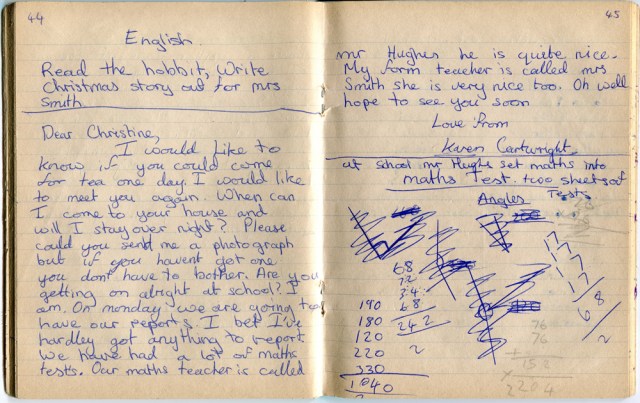 44
English
Read the hobbit, Write
Christmas story out for mrs
Smith
Dear Christine,
I would like to
know if you could come
for tea one day. I would like
to meet you again. When can
I come to your house and
will I stay over night? Please
could you send me a photograph
but if you havent got one
you dont have to bother. Are you
getting on alright at school? I
am. On monday we are going too
have our reports. I bet I've
hardley got anything to report
We have had a lot of maths
tests. Our maths teacher is called
45
mr Hughes he is quite nice.
My form teacher is called mrs
Smith she is very nice too. Oh well
hope to see you soon
Love from
Karen Cartwright
at school mr Hughs set maths into
maths Test. two sheets of
Tests
Angles
68
72
34
68
242
2
190
180
120
220
330
1040
68
2
76
76
152
2204